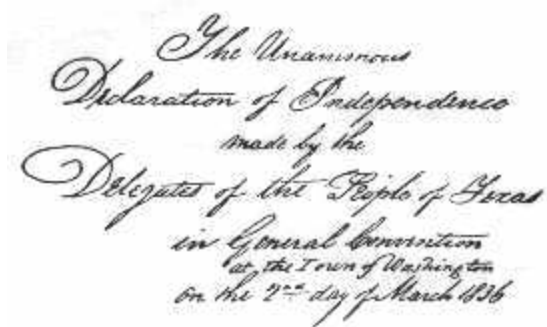 The Unanimous
Declaration of Independence
made by the
Delegates of the People of Texas
in General Convention
at the Town of Washington
on the 2nd day of March 1836